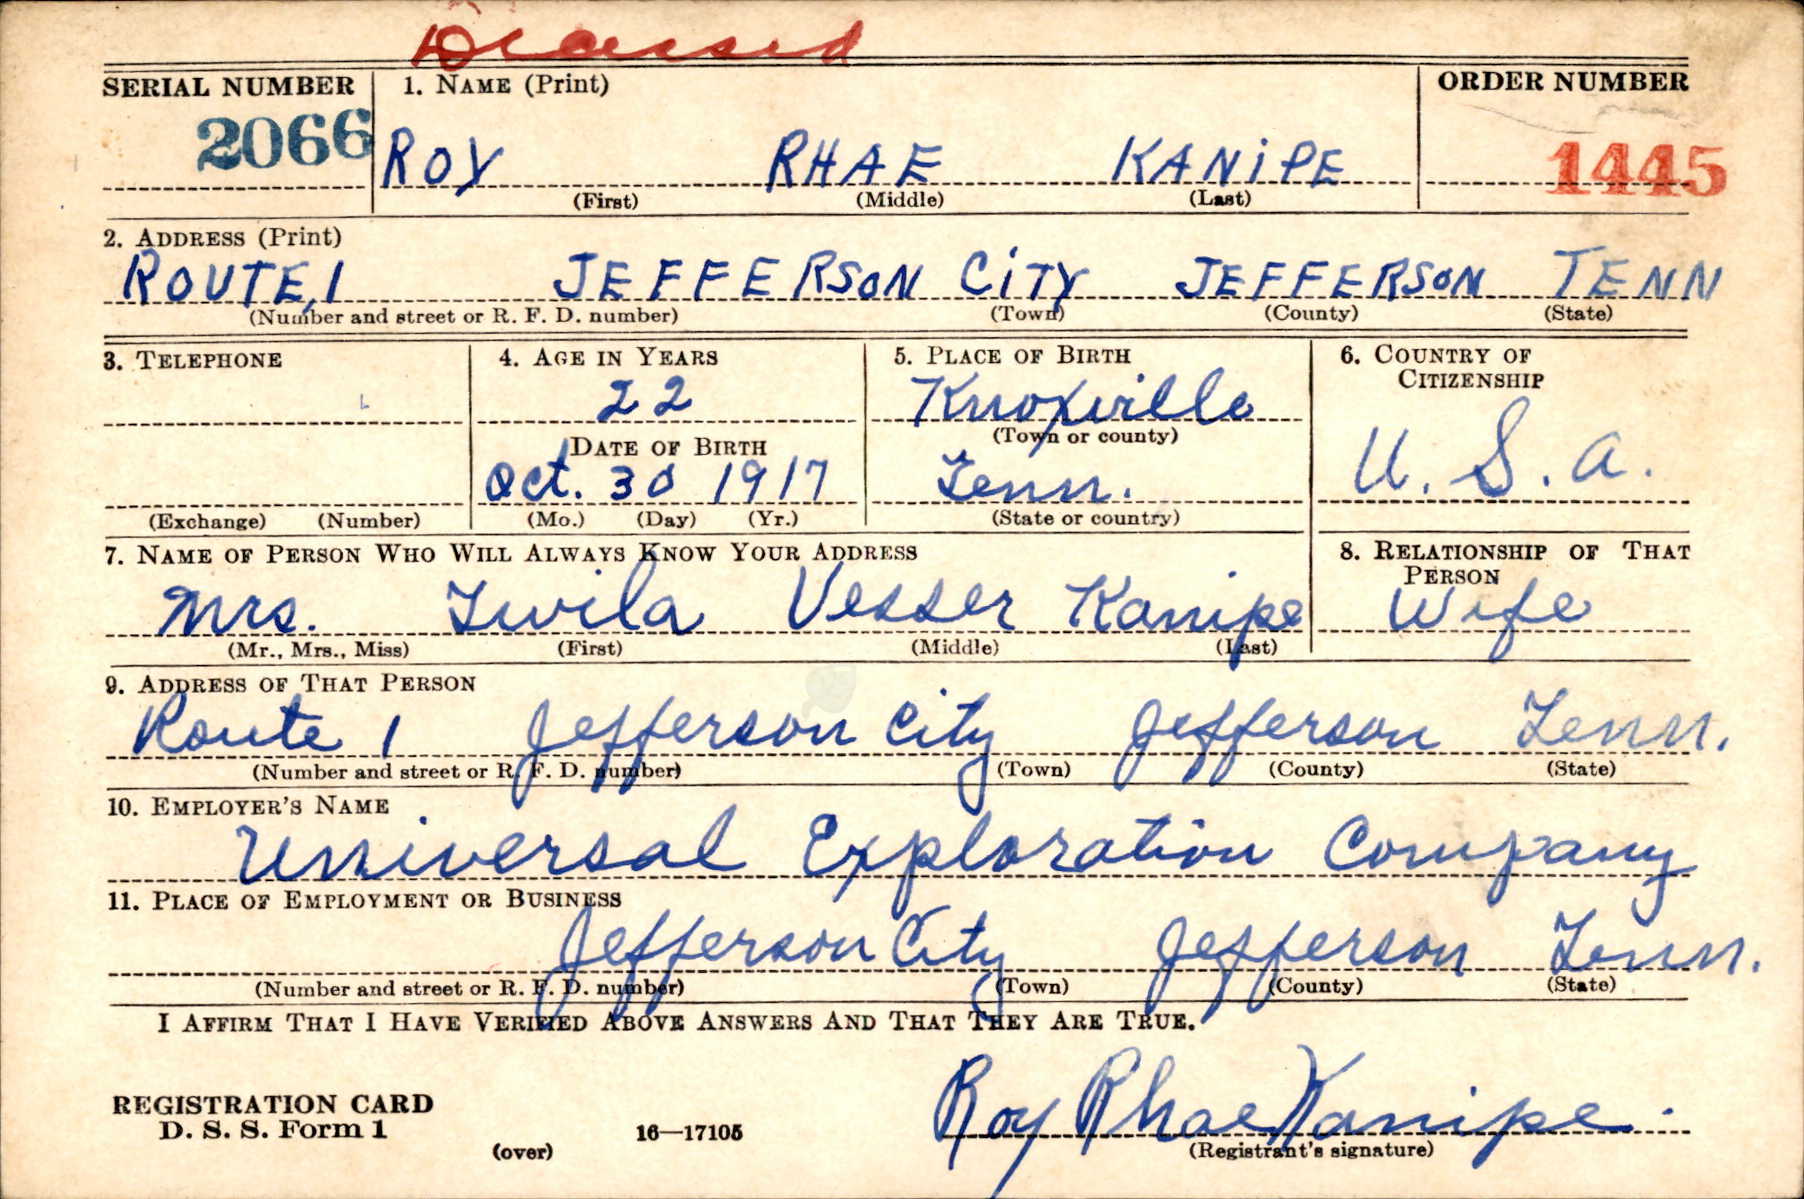 Deceased
SERIAL NUMBER 1. NAME (Print) ORDER NUMBER
2066 ROY RHAE KANIPE 1445
(First) (Middle) (Last)
2. ADDRESS (Print)
ROUTE, 1 JEFFERSON CITY JEFFERSON TENN
(Number and street or R. F. D. number) (Town) (County) (State)
3. TELEPHONE 4. AGE IN YEARS 5. PLACE OF BIRTH 6. COUNTRY OF CITIZENSHIP
22 Knoxville
DATE OF BIRTH (Town or county)
Oct. 30 1917 Tenn. U. S. A.
(Exchange) (Number) (Mo.) (Day) (Yr.) (State or country)
7. NAME OF PERSON WHO WILL ALWAYS KNOW YOUR ADDRESS 8. RELATIONSHIP OF THAT PERSON
Mrs. Twila Vesser Kanipe Wife
(Mr., Mrs., Miss) (First) (Middle) (Last)
9. ADDRESS OF THAT PERSON
Route 1 Jefferson City Jefferson Tenn.
(Number and street or R. F. D. number) (Town) (County) (State)
10. EMPLOYER'S NAME
Universal Exploration Company
11. PLACE OF EMPLOYMENT OR BUSINESS
Jefferson City Jefferson Tenn.
(Number and street or R. F. D. number) (Town) (County) (State)
I AFFIRM THAT I HAVE VERIFIED ABOVE ANSWERS AND THAT THEY ARE TRUE.
REGISTRATION CARD
D. S. S. Form 1
(over) 16—17105 Roy Rhae Kanipe.
(Registrant's signature)